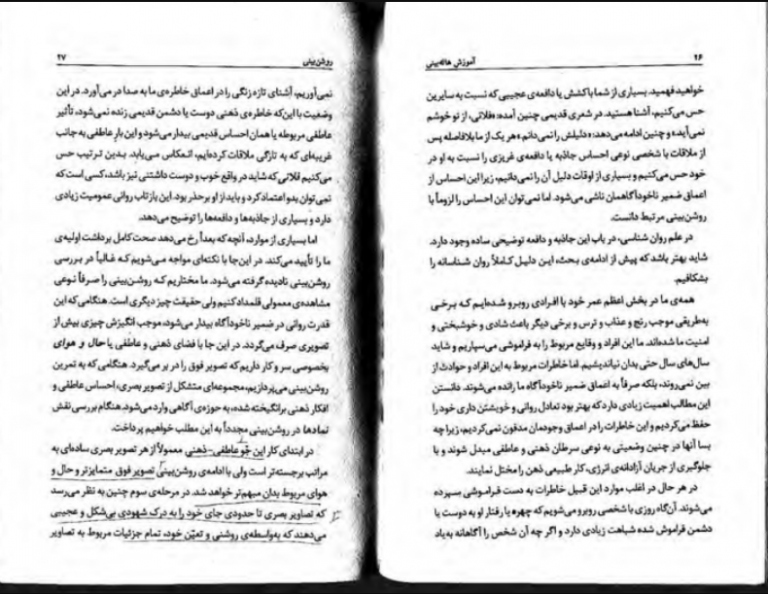 ۲۶
آموزش هاله‌بینی
خواهید فهمید. بسیاری از شما با کشش یا دافعه‌ی عجیبی که نسبت به سایرین
حس می‌کنیم، آشنا هستید. در شعری قدیمی چنین آمده: «فلانی، از تو خوشم
نمی‌آید» و چنین ادامه می‌دهد: «دلیلش را نمی‌دانم» هر یک از ما بلافاصله پس
از ملاقات با شخصی نوعی احساس جاذبه یا دافعه‌ی غریزی را نسبت به او در
خود حس می‌کنیم و بسیاری از اوقات دلیل آن را نمی‌دانیم، زیرا این احساس از
اعماق ضمیر ناخودآگاهمان ناشی می‌شود. اما نمی‌توان این احساس را لزوماً با
روشن‌بینی مرتبط دانست.
در علم روان شناسی، در باب این جاذبه و دافعه توضیحی ساده وجود دارد.
شاید بهتر باشد که پیش از ادامه‌ی بحث، این دلیل کاملاً روان شناسانه را
بشکافیم.
همه‌ی ما در بخش اعظم عمر خود با افرادی روبرو شده‌ایم که برخی
به‌طریقی موجب رنج و عذاب و ترس و برخی دیگر باعث شادی و خوشبختی و
امنیت ما شده‌اند. ما این افراد و وقایع مربوط را به فراموشی می‌سپاریم و شاید
سال‌های سال حتی بدان نیاندیشیم. اما خاطرات مربوط به این افراد و حوادث از
بین نمی‌روند، بلکه صرفاً به اعماق ضمیر ناخودآگاه ما رانده می‌شوند. دانستن
این مطالب اهمیت زیادی دارد که بهتر بود تعادل روانی و خویشتن داری خود را
حفظ می‌کردیم و این خاطرات را در اعماق وجودمان مدفون نمی‌کردیم، زیرا چه
بسا آنها در چنین وضعیتی به نوعی سرطان ذهنی و عاطفی مبدل شوند و با
جلوگیری از جریان آزادانه‌ی انرژی، کار طبیعی ذهن را مختل نمایند.
در هر حال در اغلب موارد این قبیل خاطرات به دست فراموشی سپرده
می‌شوند. آن‌گاه روزی با شخصی روبرو می‌شویم که چهره یا رفتار او به دوست یا
دشمن فراموش شده شباهت زیادی دارد و اگر چه آن شخص را آگاهانه به‌یاد
روشن‌بینی
۲۷
نمی‌آوریم، آشنای تازه زنگی را در اعماق خاطره‌ی ما به صدا در می‌آورد. در این
وضعیت با این‌که خاطره‌ی ذهنی دوست یا دشمن قدیمی زنده نمی‌شود، تأثیر
عاطفی مربوطه یا همان احساس قدیمی بیدار می‌شود و این بار عاطفی به جانب
غریبه‌ای که به تازگی ملاقات کرده‌ایم، انعکاس می‌یابد. بدین ترتیب حس
می‌کنیم فلانی که شاید در واقع خوب و دوست داشتنی نیز باشد، کسی است که
نمی‌توان بدو اعتماد کرد و باید از او برحذر بود. این بازتاب روانی عمومیت زیادی
دارد و بسیاری از جاذبه‌ها و دافعه‌ها را توضیح می‌دهد.
اما بسیاری از موارد، آنچه که بعداً رخ می‌دهد صحت کامل برداشت اولیه‌ی
ما را تأیید می‌کند. در این‌جا با نکته‌ای مواجه می‌شویم که غالباً در بررسی
روشن‌بینی نادیده گرفته می‌شود. ما مختاریم که روشن‌بینی را صرفاً نوعی
مشاهده‌ی معمولی قلمداد کنیم ولی حقیقت چیز دیگری است. هنگامی که این
قدرت روانی در ضمیر ناخودآگاه بیدار می‌شود، موجب انگیزش چیزی بیش از
تصویری صرف می‌گردد. در این جا با فضای ذهنی و عاطفی یا حال و هوای
بخصوصی سر و کار داریم که تصویر فوق را در بر می‌گیرد. هنگامی که به تمرین
روشن‌بینی می‌پردازیم، مجموعه‌ای متشکل از تصویر بصری، احساس عاطفی و
افکار ذهنی برانگیخته شده، به حوزه‌ی آگاهی وارد می‌شود. هنگام بررسی نقش
نمادها در روشن‌بینی مجدداً به این مطلب خواهیم پرداخت.
در ابتدای کار این جَو عاطفی-ذهنی معمولاً از هر تصویر بصری ساده‌ای به
مراتب برجسته‌تر است ولی با ادامه‌ی روشن‌بینی تصویر فوق متمایزتر و حال و
هوای مربوط بدان مبهم‌تر خواهد شد. در مرحله‌ی سوم چنین به نظر می‌رسد
که تصاویر بصری تا حدودی جای خود را به درک شهودی بی‌شکل و عجیبی
می‌دهند که به‌واسطه‌ی روشنی و تعیّن خود، تمام جزئیات مربوط به تصاویر